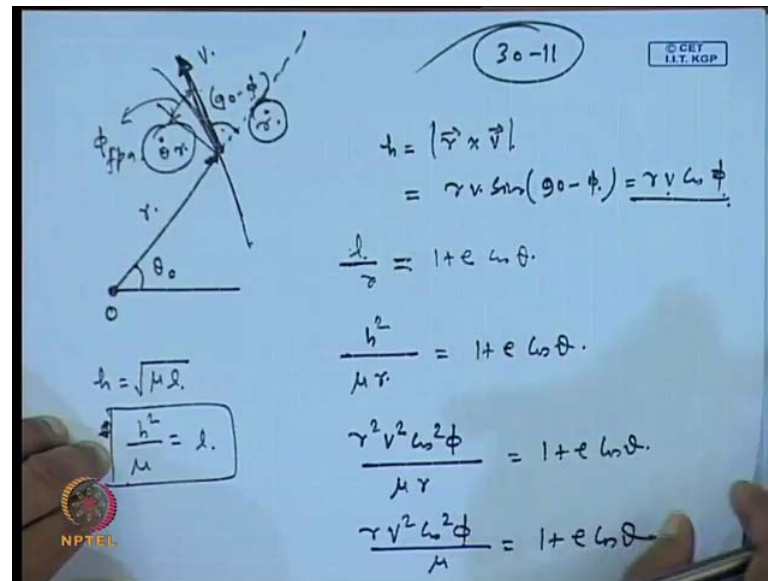 30-11
© CET
I.I.T. KGP
V.
(90-ϕ)
ṙ.
ϕfpa.
θ̇ r.
r.
θ₀
O
h = |r⃗ × v⃗|.
= r v. Sin(90-ϕ.) = r v Cos ϕ.
l./r = 1 + e Cos θ.
h²/μr. = 1 + e Cos θ.
h = √μl.
h²/μ = l.
r²v²Cos²ϕ/μr = 1 + e Cos θ.
rv²Cos²ϕ/μ = 1 + e Cos θ
NPTEL